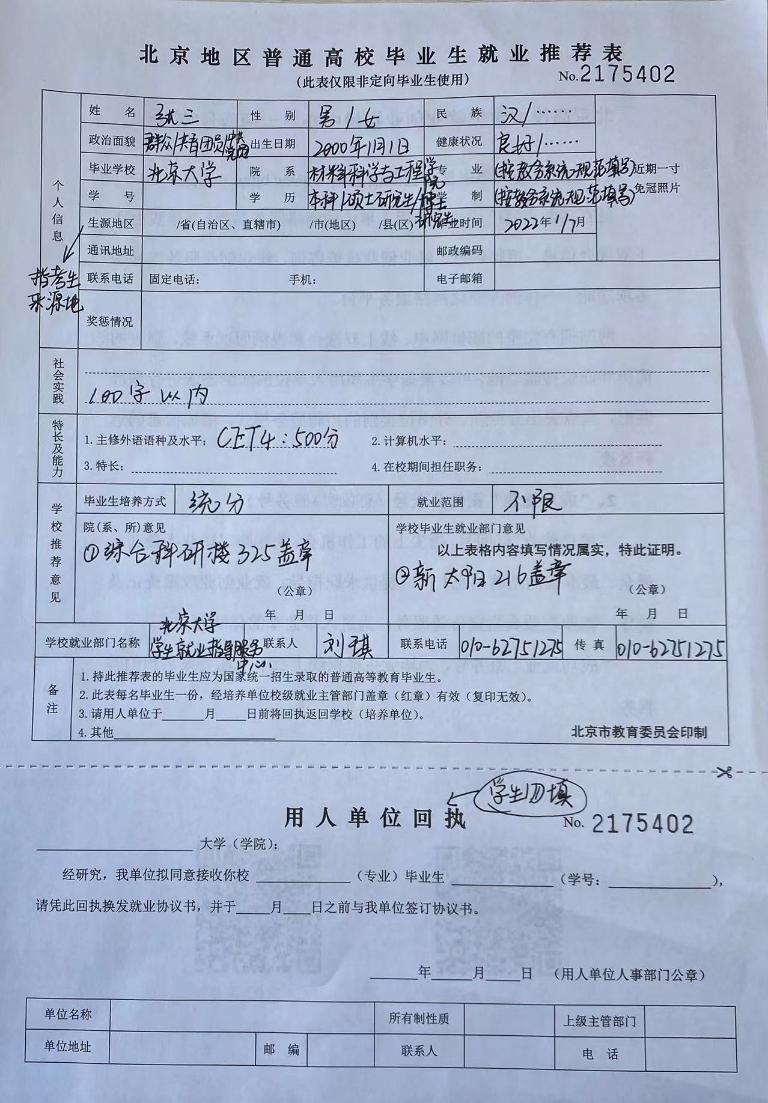 北京地区普通高校毕业生就业推荐表
(此表仅限非定向毕业生使用)
No.2175402
个人信息
姓 名 张三 性 别 男/女 民 族 汉/……
政治面貌 群众/共青团员/中共党员 出生日期 2000年1月1日 健康状况 良好/……
毕业学校 北京大学 院 系 材料科学与工程学院 专 业 (按教务系统规范填写)
学 号 学 历 本科/硕士研究生/博士研究生 学 制 (按教务系统规范填写)
近期一寸
免冠照片
生源地区 /省(自治区、直辖市) /市(地区) /县(区) 毕业时间 2022年1/7月
指考生
来源地
通讯地址 邮政编码
联系电话 固定电话: 手机: 电子邮箱
奖惩情况
社会实践
100字以内
特长及能力
1.主修外语语种及水平: CET4:500分 2.计算机水平:
3.特长: 4.在校期间担任职务:
学校推荐意见
毕业生培养方式 统分 就业范围 不限
院(系、所)意见 学校毕业生就业部门意见
①综合科研楼325盖章 以上表格内容填写情况属实,特此证明。
②新太阳216盖章
(公章) (公章)
年 月 日 年 月 日
学校就业部门名称 北京大学学生就业指导服务中心 联系人 刘琪 联系电话 010-62751275 传 真 010-62751275
备注
1.持此推荐表的毕业生应为国家统一招生录取的普通高等教育毕业生。
2.此表每名毕业生一份,经培养单位校级就业主管部门盖章(红章)有效(复印无效)。
3.请用人单位于 月 日前将回执返回学校(培养单位)。
4.其他
北京市教育委员会印制
学生勿填
用人单位回执
No. 2175402
大学(学院):
经研究,我单位拟同意接收你校 (专业)毕业生 (学号: ),
请凭此回执换发就业协议书,并于 月 日之前与我单位签订协议书。
年 月 日 (用人单位人事部门公章)
单位名称 所有制性质 上级主管部门
单位地址 邮 编 联系人 电 话